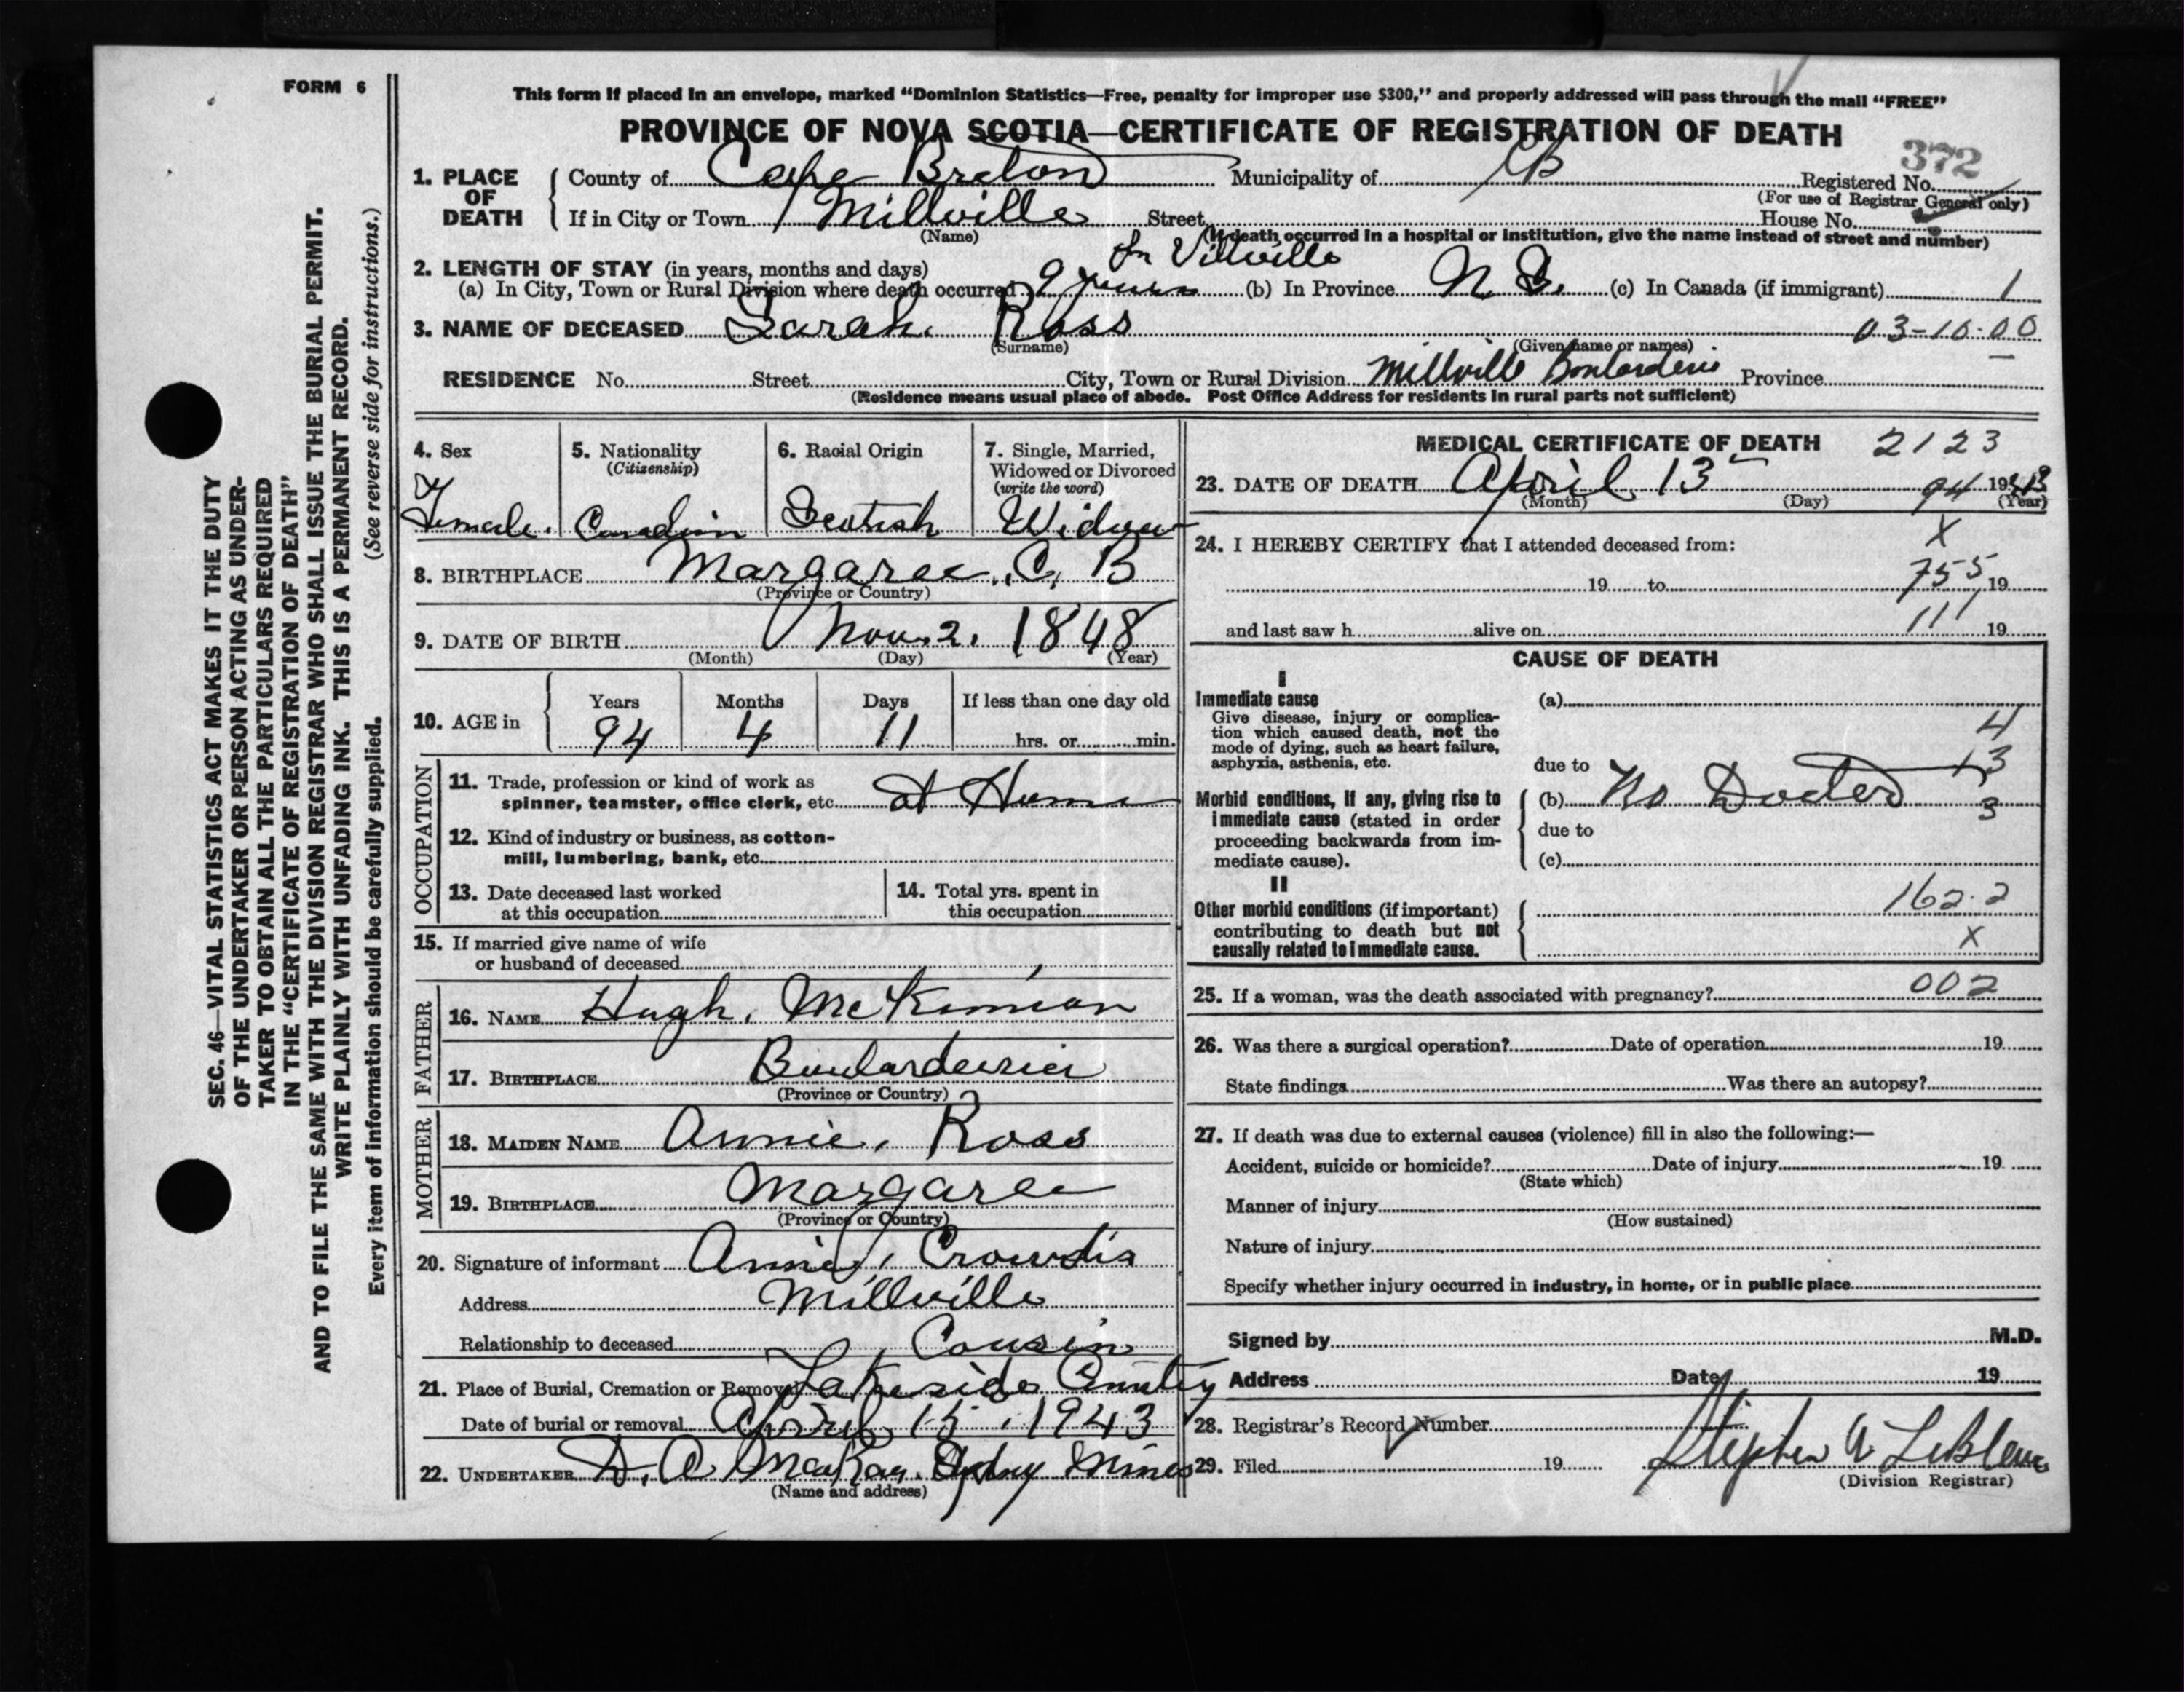 FORM 6
This form if placed in an envelope, marked “Dominion Statistics—Free, penalty for improper use $300,” and properly addressed will pass through the mail “FREE”
PROVINCE OF NOVA SCOTIA—CERTIFICATE OF REGISTRATION OF DEATH
372
1. PLACE OF DEATH { County of Cape Breton Municipality of CB Registered No.
(For use of Registrar General only)
If in City or Town Millville Street House No.
(Name) (If death occurred in a hospital or institution, give the name instead of street and number)
2. LENGTH OF STAY (in years, months and days)
(a) In City, Town or Rural Division where death occurred 9 years (b) In Province N.S. (c) In Canada (if immigrant) 1
3. NAME OF DECEASED Sarah Ross 03-10-00
(Surname) (Given name or names)
RESIDENCE No. Street City, Town or Rural Division Millville Boularderie Province
(Residence means usual place of abode. Post Office Address for residents in rural parts not sufficient)
4. Sex Female.
5. Nationality (Citizenship) Canadian
6. Racial Origin Scotish
7. Single, Married, Widowed or Divorced (write the word) Widow
8. BIRTHPLACE Margaree, C, B
(Province or Country)
9. DATE OF BIRTH Nov. 2. 1848
(Month) (Day) (Year)
10. AGE in { Years Months Days If less than one day old
94 4 11 hrs. or min.
OCCUPATION
11. Trade, profession or kind of work as
spinner, teamster, office clerk, etc. at Home
12. Kind of industry or business, as cotton-
mill, lumbering, bank, etc.
13. Date deceased last worked
at this occupation
14. Total yrs. spent in
this occupation
15. If married give name of wife
or husband of deceased
FATHER
16. NAME Hugh. McKinnon
17. BIRTHPLACE
(Province or Country)
MOTHER
18. MAIDEN NAME Annie, Ross
19. BIRTHPLACE Margaree
(Province or Country)
20. Signature of informant Annie Crowdis
Address Millville
Relationship to deceased Cousin
21. Place of Burial, Cremation or Removal Lakeside
Date of burial or removal April 15, 1943
22. UNDERTAKER D. A. MacKay. Sydney Mines
(Name and address)
MEDICAL CERTIFICATE OF DEATH 2123
23. DATE OF DEATH April 13 94 1943
(Month) (Day) (Year)
24. I HEREBY CERTIFY that I attended deceased from: X
19 to 755 19
and last saw h alive on 111 19
CAUSE OF DEATH
I
Immediate cause
Give disease, injury or complica-
tion which caused death, not the
mode of dying, such as heart failure,
asphyxia, asthenia, etc.
(a)
4
due to 13
Morbid conditions, if any, giving rise to
immediate cause (stated in order
proceeding backwards from im-
mediate cause).
(b) No Doctor 3
due to
(c)
II
Other morbid conditions (if important)
contributing to death but not
causally related to immediate cause.
162.2
X
25. If a woman, was the death associated with pregnancy? 002
26. Was there a surgical operation? Date of operation 19
State findings Was there an autopsy?
27. If death was due to external causes (violence) fill in also the following:—
Accident, suicide or homicide? Date of injury 19
(State which)
Manner of injury
(How sustained)
Nature of injury
Specify whether injury occurred in industry, in home, or in public place
Signed by M.D.
Address Date 19
28. Registrar's Record Number
29. Filed 19 Stephen A LeBlanc
(Division Registrar)
SEC. 46—VITAL STATISTICS ACT MAKES IT THE DUTY
OF THE UNDERTAKER OR PERSON ACTING AS UNDER-
TAKER TO OBTAIN ALL THE PARTICULARS REQUIRED
IN THE “CERTIFICATE OF REGISTRATION OF DEATH”
AND TO FILE THE SAME WITH THE DIVISION REGISTRAR WHO SHALL ISSUE THE BURIAL PERMIT.
WRITE PLAINLY WITH UNFADING INK. THIS IS A PERMANENT RECORD.
Every item of information should be carefully supplied. (See reverse side for instructions.)